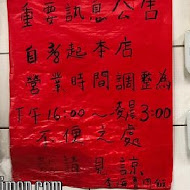 重要訊息公告
自考起本店
營業時間調整為
下午16:00～凌晨3:00
不便之處
敬請見諒